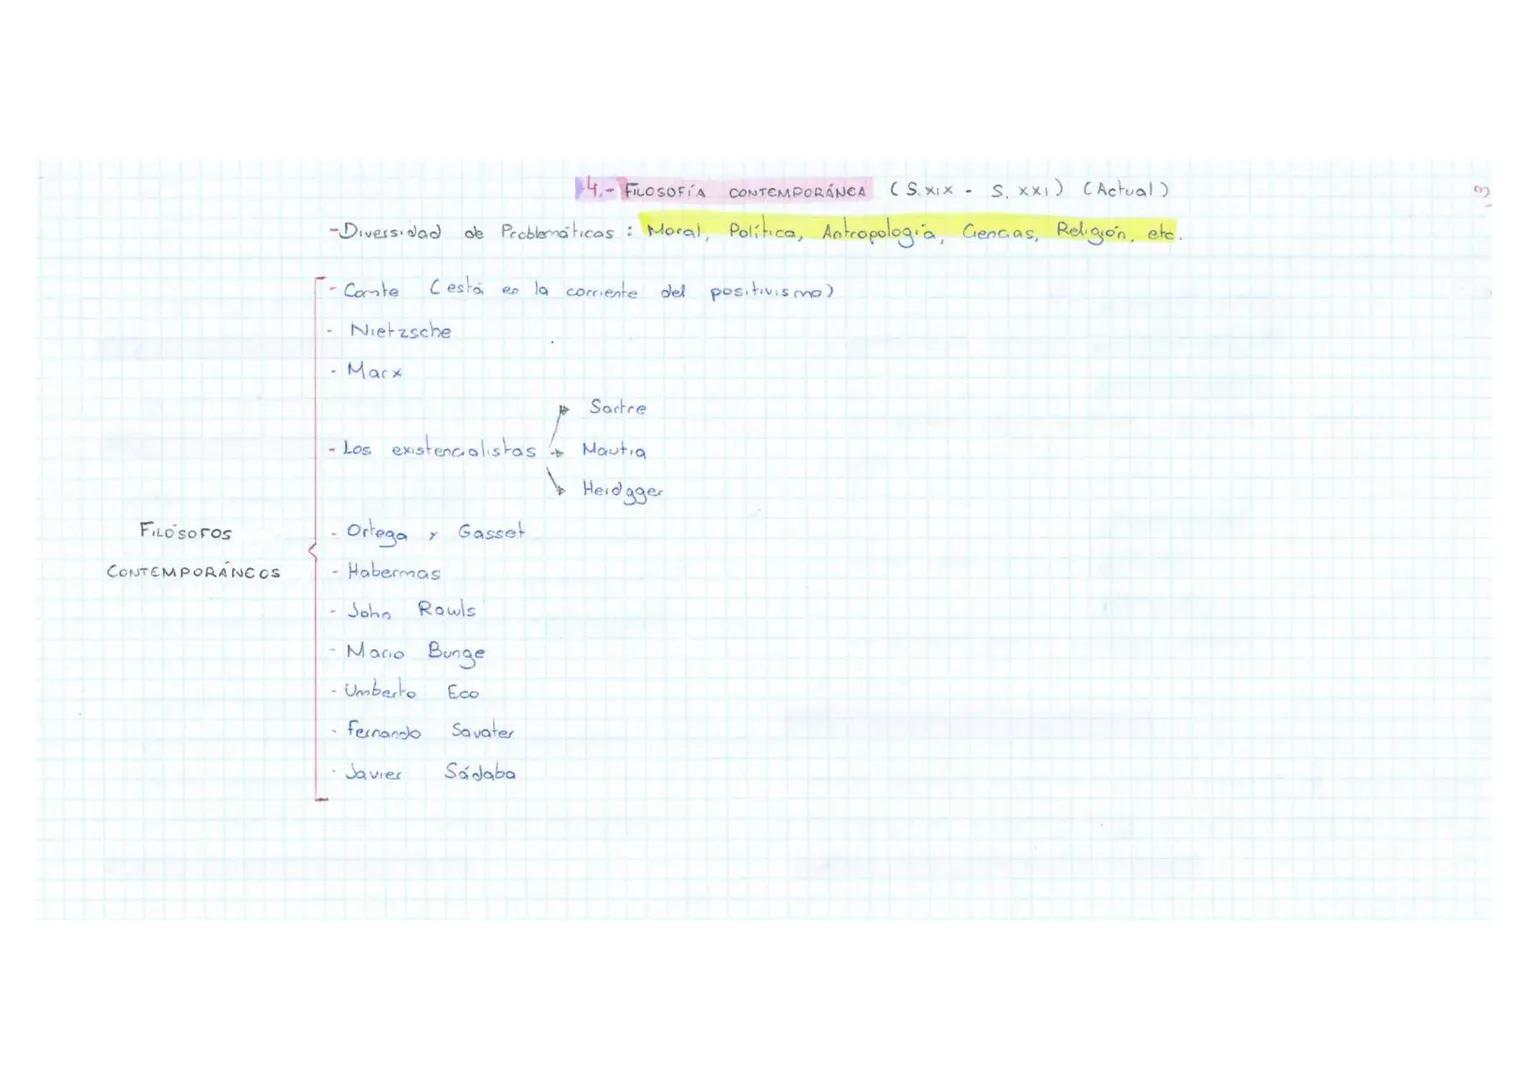 4.- FILOSOFÍA CONTEMPORÁNEA (S.XIX - S. XXI) (Actual)
3
-Diversidad de Problemáticas : Moral, Política, Antropología, Ciencias, Religión, etc.
- Comte (está en la corriente del positivismo)
- Nietzsche
- Marx
Sartre
- Los existencialistas → Mautia
Heidgger
FILÓSOFOS
CONTEMPORÁNEOS
- Ortega y Gasset
- Habermas
- John Rawls
- Mario Bunge
- Umberto Eco
- Fernando Savater
- Javier Sádaba